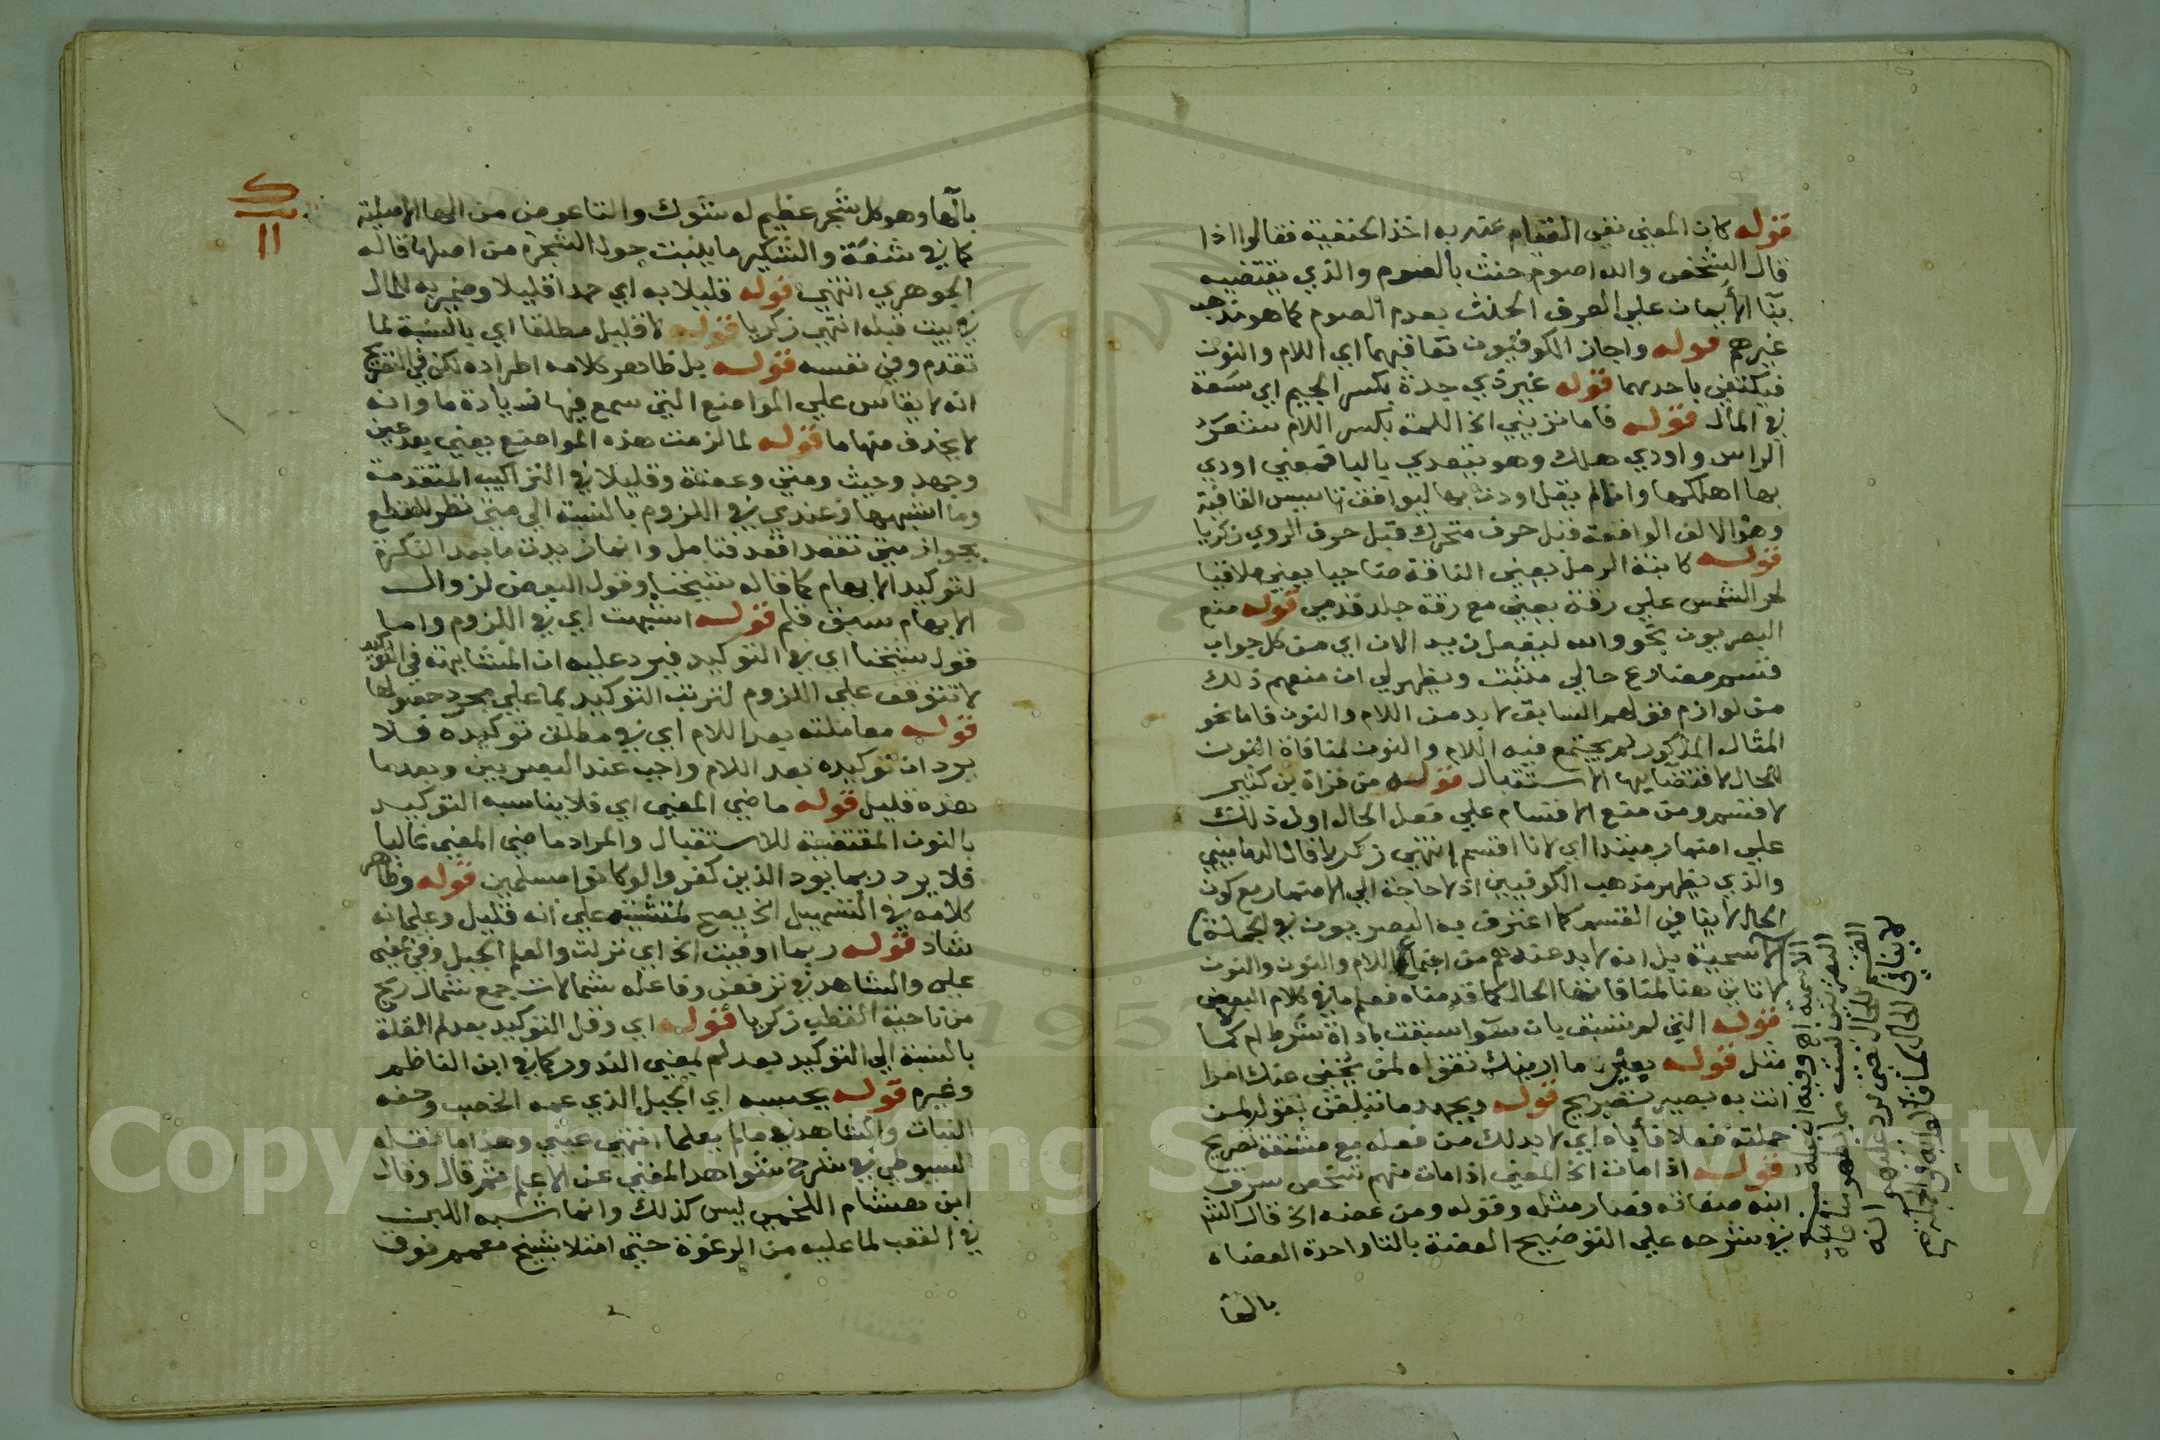 قوله كان المعنى نفي القيام عنه به اخذ الحنفية فقالوا اذا
قال الشخص والله اصوم حنث بالصوم والذي يقتضيه
بنا الأيمان علي العرف الحنث بعدم الصوم كما هو مذهب
غيرهم قوله واجاز الكوفيون تعاقبهما اي اللام والنون
فيكتفي باحدهما قوله غير ذي جدة بكسر الجيم اي سعة
في المال قوله فاما تريني الخ اللمة بكسر اللام شعر
الراس واودي هلك وهو يتعدي باليا فمعني اودي
بها اهلكها وانما لم يقل اودت بها ليوافق تاسيس القافية
وهو الالف الواقعة قبل حرف متحرك قبل حرف الروي زكريا
قوله كابنة الرمل يعني الناقة ضاحيا يعني ملاقيا
لحر الشمس علي رقة يعني مع رقة جلد قدمي قوله منع
البصريون نحو والله ليفعل زيد الان اي من كل جواب
قسم مضارع حالي مثبت ويظهر لي ان منعهم ذلك
من لوازم قولهم السابق لا بد من اللام والنون فاما نحو
المثال المذكور لم يجتمع فيه اللام والنون لمنافاة النون
للحال لاقتضايها الاستقبال قوله من قراة بن كثير
لاقسم ومن منع الاقسام علي فعل الحال اول ذلك
علي اضمار مبتدا اي لانا اقسم انتهي زكريا قال الدماميني
والذي يظهر مذهب الكوفيين اذ لا حاجة الي الاضمار مع كون
الحال لا ينافي القسم كما اعترف به البصريون في الجملة
الاسمية بل انه لا بد عندهم من اجتماع اللام والنون والنون
لا تاتي هنا لمنافاتها الحال كما قدمناه فعلم ما في كلام البعض
قوله التي لم تسبق بان سوا سبقت باداة شرط ام لا كما
مثل قوله بعين ما ارينك تقوله لمن يخفي عنك امرا
انت به بصير تصريح قوله وبجهد ما تبلغن تقوله لمن
حملته فعلا فأباه اي لا بد لك من فعله مع مشقة تصريح
قوله اذا مات الخ المعني اذا مات منهم شخص سرق
ابنه صفاته فصار مثله وقوله ومن عضه الخ قال الشم
في شرحه علي التوضيح العضة بالتا واحدة العضاه
بالها
الاسمية
لا ينافي الحال كما قالوا به في الجملة
بالها وهو كل شجر عظيم له شوك والتا عوض من الها الاصلية
كما في شفة والشكير ما ينبت حول الشجرة من اصلها قاله
الجوهري انتهي قوله قليلا به اي حمدا قليلا وضمير به للمال
في بيت قبله انتهي زكريا قوله لا قليل مطلقا اي بالنسبة لما
تقدم وفي نفسه قوله بل ظاهر كلامه اطراده لكن في التصريح
انه لا يقاس علي المواضع التي سمع فيها زيادة ما وانه
لا يحذف منها ما قوله لما لزمت هذه المواضع يعني بعد عين
وجهد وحيث ومتي وعضة وقليلا في التراكيب المتقدمة
وما اشبهها وعندي في اللزوم بالنسبة الي متي نظر للقطع
بجواز متي تقعد اقعد فتامل وانما زيدت ما بعد النكرة
لتوكيد الابهام كما قاله شيخنا وقول البعض لزوال
الابهام سبق قلم قوله اشبهت اي في اللزوم واما
قول شيخنا اي في التوكيد فيرد عليه ان المشابهة في التوكيد
لا تتوقف علي اللزوم لترتب التوكيد بما علي مجرد حصولها
قوله معاملته بعد اللام اي في مطلق توكيده فلا
يرد ان توكيده بعد اللام واجب عند البصريين وبعد ما
هذه قليل قوله ماضي المعني اي فلا يناسبه التوكيد
بالنون المقتضية للاستقبال والمراد ماضي المعني غالبا
فلا يرد ربما يود الذين كفروا لو كانوا مسلمين قوله وظاهر
كلامه في التسهيل الخ يصح لمشيته علي انه قليل وعلي انه
شاذ قوله ربما اوفيت الخ اي نزلت والعلم الجبل وفي بمعني
علي والشاهد في ترفعن وفاعله شمالات جمع شمال ريح
من ناحية القطب زكريا قوله اي وقل التوكيد بعد لم القلة
بالنسبة الي التوكيد بعد لم بمعني الندور كما في ابن الناظم
وغيره قوله يحسبه اي الجبل الذي عمه الخصب وحفه
النبات والشاهد في ما لم يعلما انتهي عيني وهذا ما نقله
السيوطي في شرح شواهد المغني عن الاعلم ثم قال وقال
ابن هشام اللخمي ليس كذلك وانما شبه اللبن
في القعب لما عليه من الرغوة حتي امتلا بشيخ معمم فوق
ك
١١